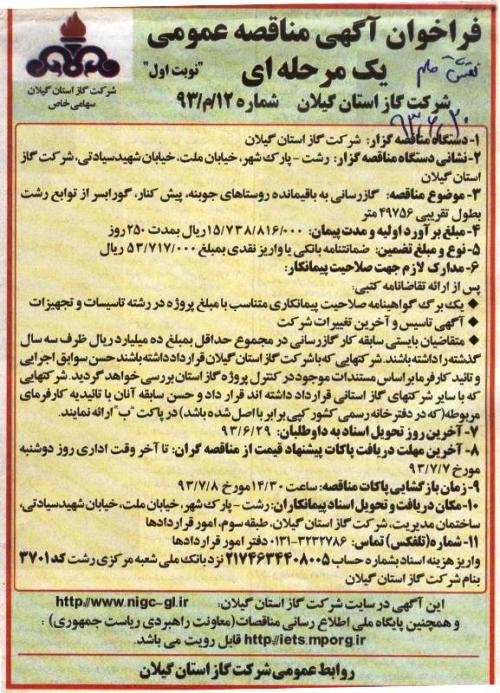 فراخوان آگهی مناقصه عمومی
یک مرحله ای
"نوبت اول"
شرکت گاز استان گیلان
سهامی خاص
شرکت گاز استان گیلان شماره ۹۳/م/۱۲
۹۳/۶/۲۰
۱- دستگاه مناقصه گزار: شرکت گاز استان گیلان
۲- نشانی دستگاه مناقصه گزار: رشت - پارک شهر، خیابان ملت، خیابان شهید سیادتی، شرکت گاز
استان گیلان
۳- موضوع مناقصه: گازرسانی به باقیمانده روستاهای جوبنه، پیش کنار، گورابسر از توابع رشت
بطول تقریبی ۴۹۷۵۶ متر
۴- مبلغ برآورد اولیه و مدت پیمان: ۱۵/۷۳۸/۸۱۶/۰۰۰ ریال بمدت ۲۵۰ روز
۵- نوع و مبلغ تضمین: ضمانتنامه بانکی یا واریز نقدی بمبلغ ۵۳/۷۱۷/۰۰۰ ریال
۶- مدارک لازم جهت صلاحیت پیمانکار:
پس از ارائه تقاضانامه کتبی:
◆ یک برگ گواهینامه صلاحیت پیمانکاری متناسب با مبلغ پروژه در رشته تاسیسات و تجهیزات
◆ آگهی تاسیس و آخرین تغییرات شرکت
◆ متقاضیان بایستی سابقه کار گازرسانی در مجموع حداقل بمبلغ ده میلیارد ریال ظرف سه سال
گذشته را داشته باشند. شرکتهایی که با شرکت گاز استان گیلان قرارداد داشته باشند حسن سوابق اجرایی
و تائید کارفرما بر اساس مستندات موجود در کنترل پروژه گاز استان بررسی خواهد گردید. شرکتهایی
که با سایر شرکتهای گاز استانی قرارداد داشته اند قرار داد و حسن سابقه آنان با تائیدیه کارفرمای
مربوطه (که در دفترخانه رسمی کشور کپی برابر با اصل شده باشد) در پاکت "ب" ارائه نمایند.
۷- آخرین روز تحویل اسناد به داوطلبان: ۹۳/۶/۲۹
۸- آخرین مهلت دریافت پاکات پیشنهاد قیمت از مناقصه گران: تا آخر وقت اداری روز دوشنبه
مورخ ۹۳/۷/۷
۹- زمان بازگشایی پاکات مناقصه: ساعت ۱۴/۳۰ مورخ ۹۳/۷/۸
۱۰- مکان دریافت و تحویل اسناد پیمانکاران: رشت - پارک شهر، خیابان ملت، خیابان شهید سیادتی،
ساختمان مدیریت، شرکت گاز استان گیلان، طبقه سوم، امور قراردادها
۱۱- شماره (تلفکس) تماس: ۳۲۳۲۷۸۶-۰۱۳۱ دفتر امور قراردادها
واریز هزینه اسناد بشماره حساب ۲۱۷۴۶۳۴۴۰۸۰۰۵ نزد بانک ملی شعبه مرکزی رشت کد ۳۷۰۱
بنام شرکت گاز استان گیلان
این آگهی در سایت شرکت گاز استان گیلان: http://www.nigc-gl.ir
و همچنین پایگاه ملی اطلاع رسانی مناقصات (معاونت راهبردی ریاست جمهوری) :
http://iets.mporg.ir قابل رویت می باشد.
روابط عمومی شرکت گاز استان گیلان